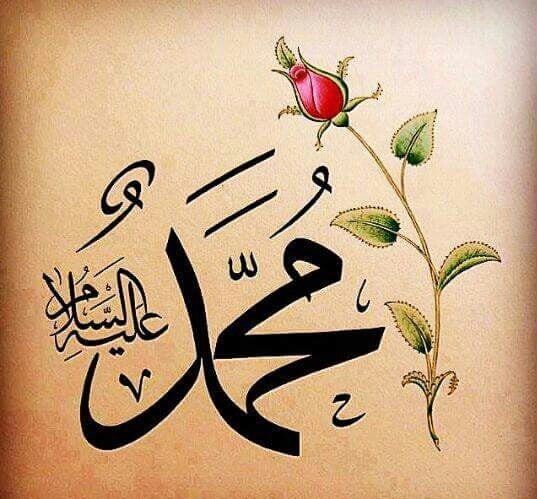 مُحَمَّدٌ
عليه السَّلَام